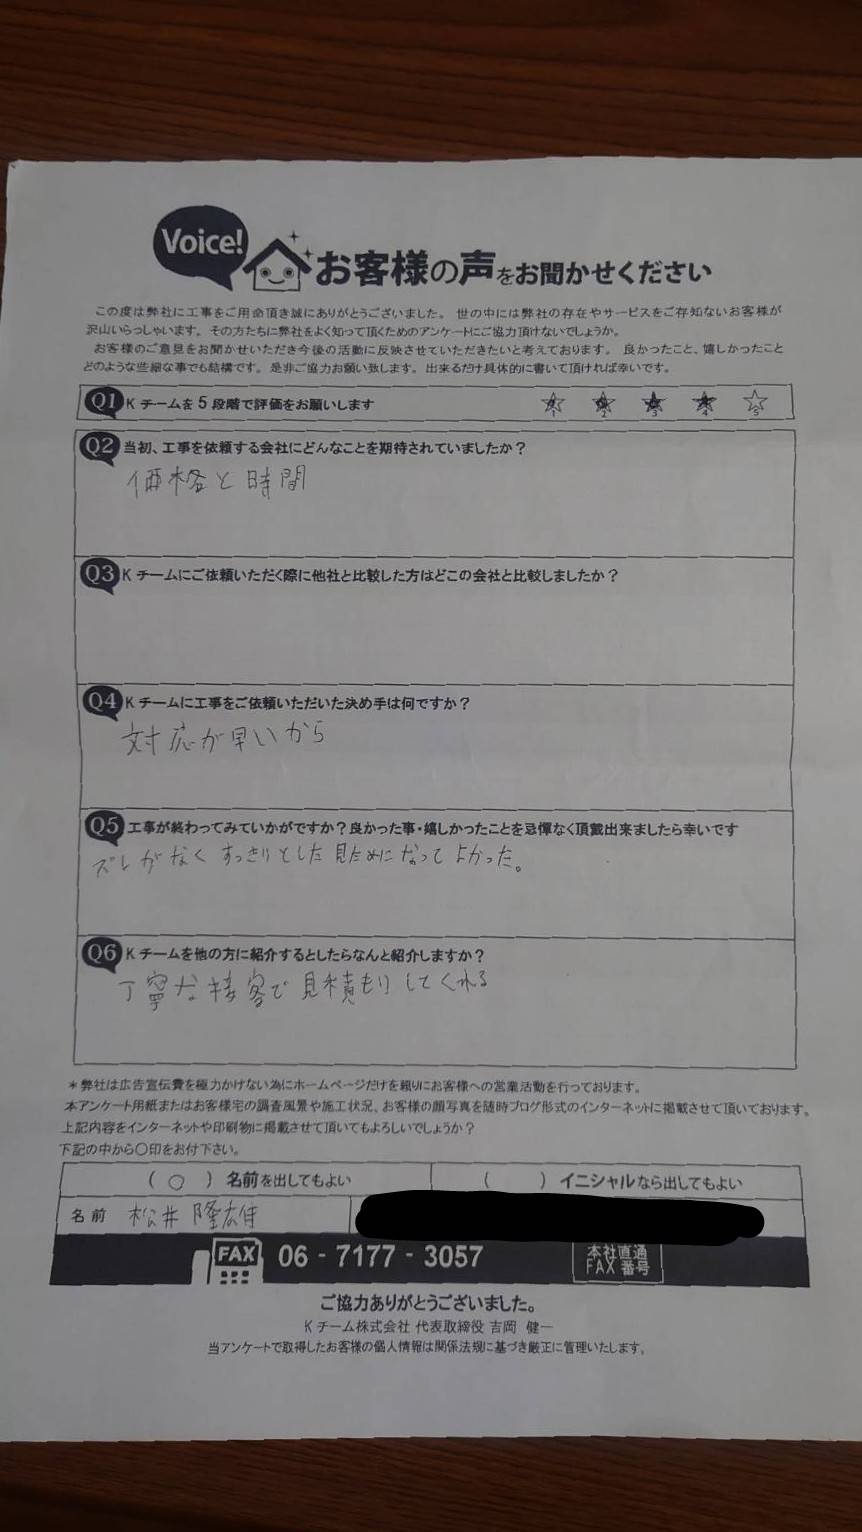 Voice!
お客様の声をお聞かせください
この度は弊社に工事をご用命頂き誠にありがとうございました。 世の中には弊社の存在やサービスをご存知ないお客様が
沢山いらっしゃいます。その方たちに弊社をよく知って頂くためのアンケートにご協力頂けないでしょうか。
お客様のご意見をお聞かせいただき今後の活動に反映させていただきたいと考えております。 良かったこと、嬉しかったこと
どのような些細な事でも結構です。是非ご協力お願い致します。出来るだけ具体的に書いて頂ければ幸いです。
Q1 Kチームを5段階で評価をお願いします 1 2 3 4 5
Q2 当初、工事を依頼する会社にどんなことを期待されていましたか？
価格と時間
Q3 Kチームにご依頼いただく際に他社と比較した方はどこの会社と比較しましたか？
Q4 Kチームに工事をご依頼いただいた決め手は何ですか？
対応が早いから
Q5 工事が終わってみていかがですか？良かった事・嬉しかったことを忌憚なく頂戴出来ましたら幸いです
ズレがなくすっきりとした見ためになってよかった。
Q6 Kチームを他の方に紹介するとしたらなんと紹介しますか？
丁寧な接客で見積もりしてくれる
＊弊社は広告宣伝費を極力かけない為にホームページだけを頼りにお客様への営業活動を行っております。
本アンケート用紙またはお客様宅の調査風景や施工状況、お客様の顔写真を随時ブログ形式のインターネットに掲載させて頂いております。
上記内容をインターネットや印刷物に掲載させて頂いてもよろしいでしょうか？
下記の中から〇印をお付下さい。
（ ○ ）名前を出してもよい （ ）イニシャルなら出してもよい
名前 松井 隆
FAX 06-7177-3057 本社直通
FAX番号
ご協力ありがとうございました。
Kチーム株式会社 代表取締役 吉岡 健一
当アンケートで取得したお客様の個人情報は関係法規に基づき厳正に管理いたします。